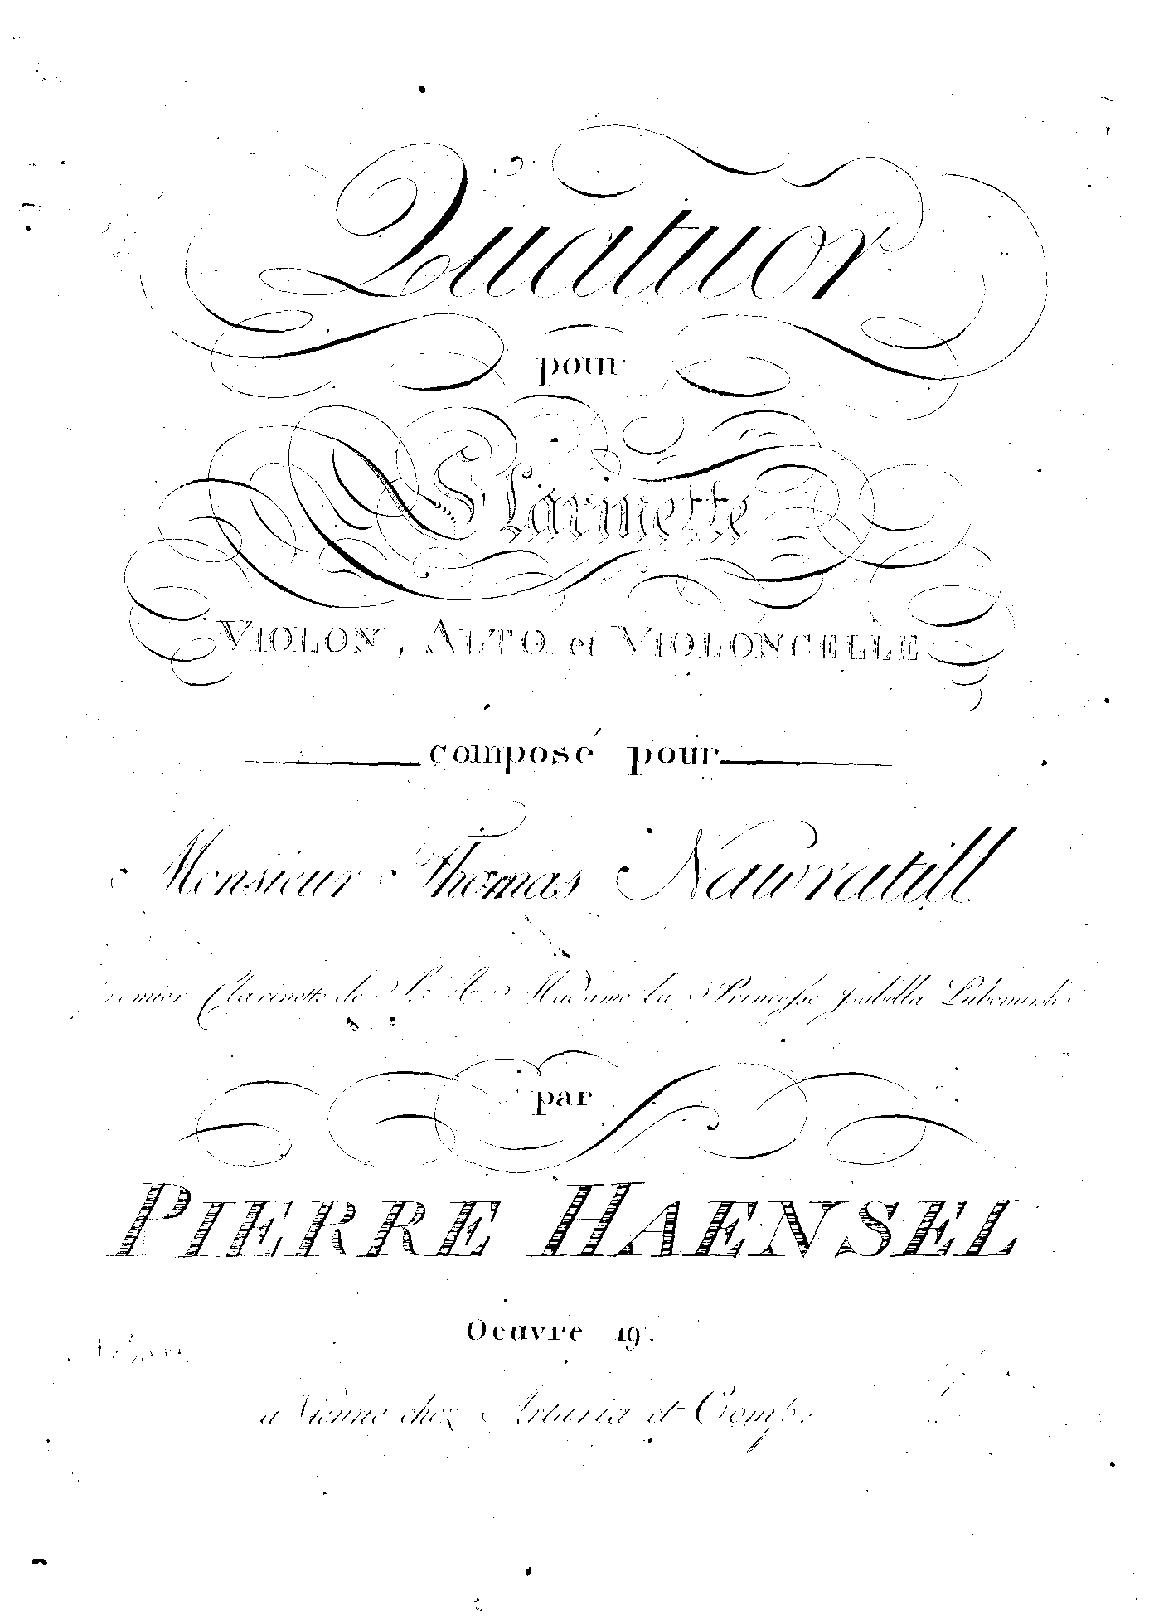 Quatuor
pour
Clarinette
VIOLON, ALTO et VIOLONCELLE
composé pour
Monsieur Thomas Nawratill
Clarinette de S. A. Madame la Princesse Isabella
par
PIERRE HAENSEL
Oeuvre 19.
a Vienne chez Artaria et Comp.